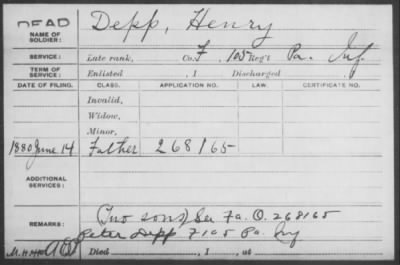 DEAD
NAME OF SOLDIER: Depp, Henry
SERVICE: Late rank, Co. F, 105 Reg't Pa. Inf.
TERM OF SERVICE: Enlisted , 1 Discharged , 1
DATE OF FILING. CLASS. APPLICATION NO. LAW. CERTIFICATE NO.
Invalid,
Widow,
Minor,
1880 June 14 Father 268165
ADDITIONAL SERVICES:
REMARKS: (Two sons) See Fa. O. 268165
Peter Depp F 105 Pa. Inf
Died , 1 , at